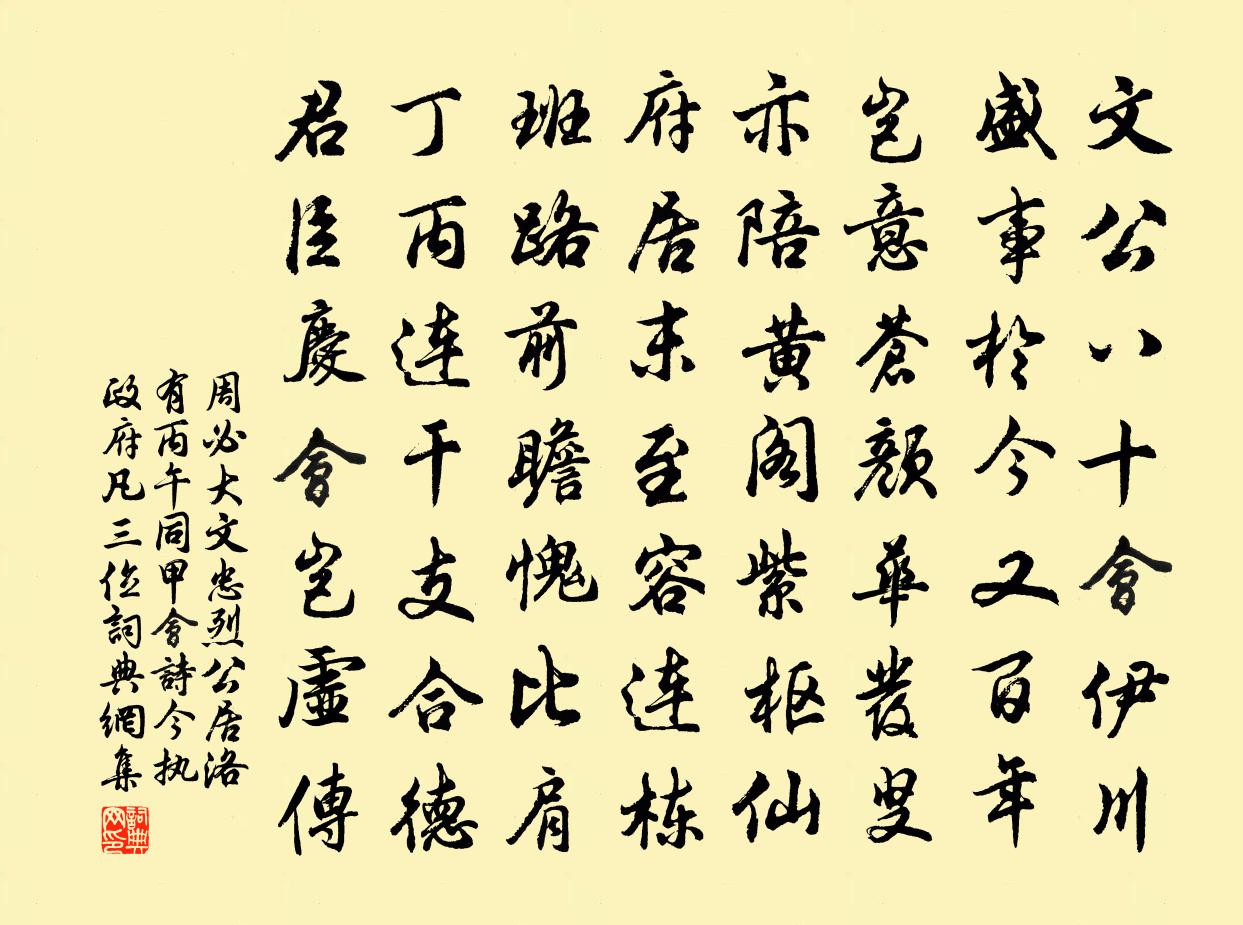 文公八十會伊川
盛事於今又百年
岂意蒼顔華發叟
亦陪黄阁紫枢仙
府居末至容连栋
班路前瞻愧比肩
丁丙连干支合德
君臣慶會岂虚傳
周必大文忠烈公居洛
有丙午同甲會詩今执
政府凡三位詞典網集
詞典网印